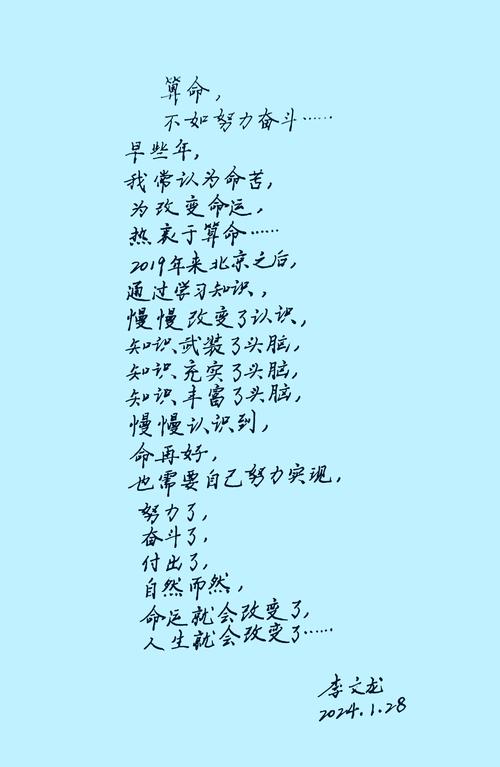 算命，
不如努力奋斗……
早些年，
我常认为命苦，
为改变命运，
热衷于算命……
2019年来北京之后，
通过学习知识，
慢慢改变了认识，
知识武装了头脑，
知识充实了头脑，
知识丰富了头脑，
慢慢认识到，
命再好，
也需要自己努力实现，
努力了，
奋斗了，
付出了，
自然而然，
命运就会改变了，
人生就会改变了……
李文龙
2024.1.28